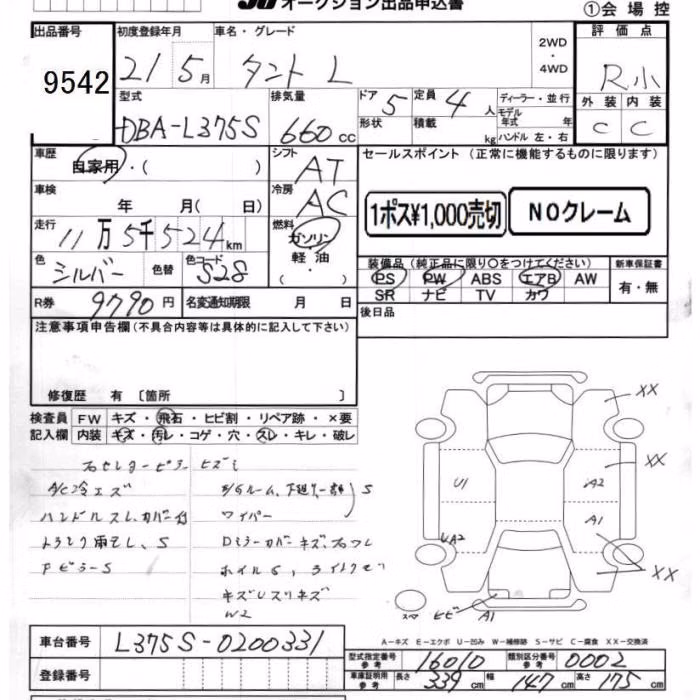 オークション出品申込書
①会場控
出品番号
9542
初度登録年月
21 5月
車名・グレード
タント L
2WD
・
4WD
評価点
R小
外装 内装
C C
型式
DBA-L375S
排気量
660cc
ドア 5
形状
定員 4人
積載 kg
ディーラー・並行
モデル
年式 年
ハンドル 左・右
車歴
自家用・( )
シフト
AT
車検
年 月( 日)
冷房
AC
走行
11万5千524km
燃料
ガソリン
軽油
・( )
色
シルバー
色替
色コード
S28
R券 9790円
名変通知期限 月 日
セールスポイント (正常に機能するものに限ります)
1ポス¥1,000売切
NOクレーム
装備品(純正品に限り○をつけてください)
PS PW ABS エアB AW
SR ナビ TV カワ
新車保証書
有・無
後日品
注意事項申告欄(不具合内容等は具体的に記入して下さい)
修復歴 有〔箇所 〕
検査員
記入欄
FW キズ・飛石・ヒビ割・リペア跡・×要
内装 キズ・汚レ・コゲ・穴・スレ・キレ・破レ
右センターピラーヒズミ
A/C冷エズ
ハンドルスレ、カバー付
トランク雨モレ、S
PピラーS
S
ワイパー
Dミラーカバーキズ、
キズ
W2
XX
XX
XX
U1
A2
A1
UA2
スマ
ヒビ
A1
A-キズ E-エクボ U-凹み W-補修跡 S-サビ C-腐食 XX-交換済
車台番号 L375S-0200331
登録番号
型式指定番号
参考
16010
類別区分番号
参考
0002
車庫証明用
参考
長さ 339cm
幅 147cm
高さ 175cm